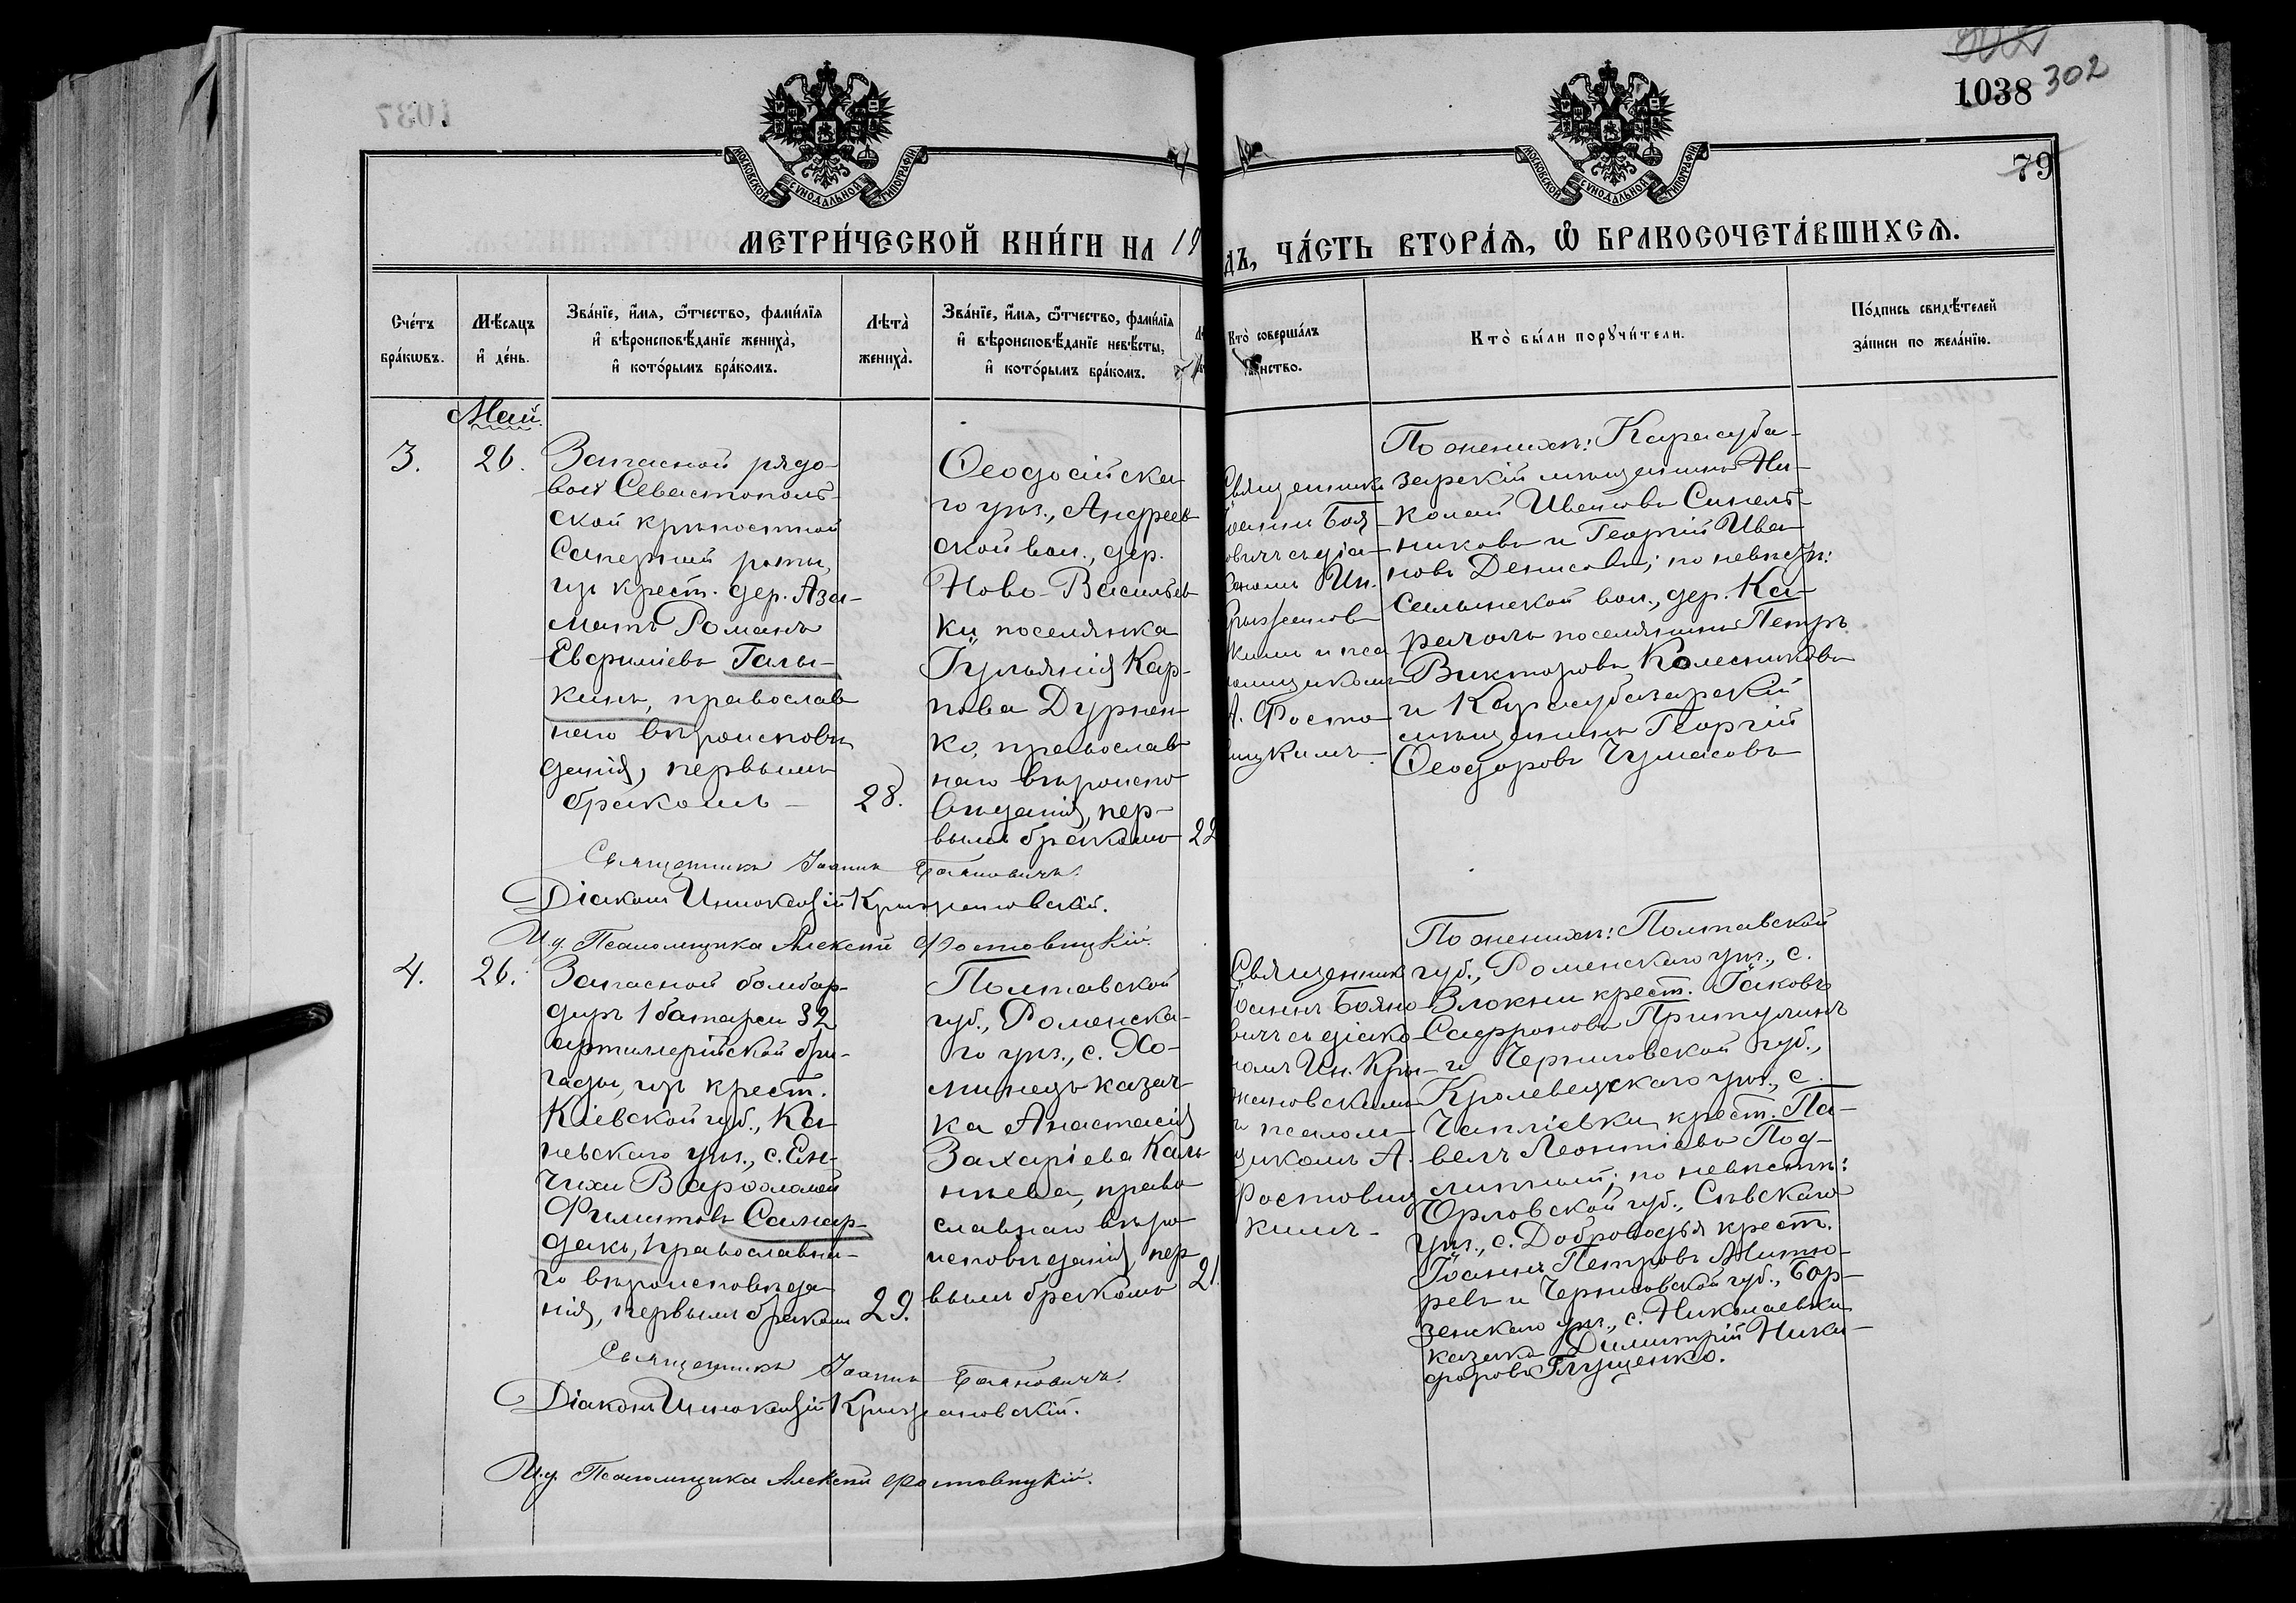 1037
302
1038
79
МОСКОВСКОЙ СѴНОДАЛЬНОЙ ТИПОГРАФІИ
МОСКОВСКОЙ СѴНОДАЛЬНОЙ ТИПОГРАФІИ
МЕТРИ́ЧЕСКОЙ КНИ́ГИ НА 19
ДЪ, ЧА́СТЬ ВТОРА́Я, Ѽ БРАКОСОЧЕТА́ВШИХСЯ.
Сче́тъ
бра́кѡвъ.
Мѣ́сяцъ
и҆ де́нь.
Зва́нїе, и҆́мя, ѻ҆́тчество, фами́лїя
и҆ вѣроисповѣ́данїе жениха̀,
и҆ кото́рымъ бра́комъ.
Лѣта̀
жениха̀.
Зва́нїе, и҆́мя, ѻ҆́тчество, фами́лїя
и҆ вѣроисповѣ́данїе невѣ́сты,
и҆ кото́рымъ бра́комъ.
Кто̀ соверша́лъ
та́инство.
Кто̀ бы́ли порꙋчи́тели.
По́дпись свидѣ́телей
за́писи по жела́нїю.
Май.
3.
26.
Запасной рядо-
вой Севастополь-
ской крѣпостной
Саперной роты,
изъ крест. дер. Аза-
матъ Романъ
Евфиміевъ Галы-
кинъ, православ
наго вѣроисповѣ
данія, первымъ
бракомъ —
28.
Ѳеодосійска
го уѣз., Андреев
ской вол., дер.
Ново-Васильев
ки поселянка
Іульянія Кар-
пова Дурнен
ко, православ
наго вѣроиспо
вѣданія, пер-
вымъ бракомъ
22
Священникъ
Іоаннъ Боя-
новичъ съ діа-
кономъ Ин.
Крыжанов
скимъ и пса
ломщикомъ
А. Росто-
вицкимъ.
По женихѣ: Карасуба-
зарскій мѣщанинъ Ни-
колай Ивановъ Синель-
никовъ и Георгій Ива-
новъ Денисовъ; по невѣстѣ:
Салынской вол., дер. Ка-
рачоль поселянинъ Петръ
Викторовъ Колесниковъ
и Карасубазарскій
мѣщанинъ Георгій
Ѳеодоровъ Чумасовъ
Священникъ Іоаннъ Бояновичъ.
Діаконъ Иннокентій Крыжановскій.
И.д. Псаломщика Алексѣй Ростовицкій.
4.
26.
Запасной бомбар-
диръ 1 батареи 32
артиллерійской бри-
гады, изъ крест.
Кіевской губ., Ка
невскаго уѣз., с. Ен-
чихи Варѳоломей
Филиповъ Самар-
дакъ, православна-
го вѣроисповѣда
нія, первымъ бракомъ
29.
Полтавской
губ., Роменска-
го уѣз., с. Хо-
минецъ казач-
ка Анастасія
Захаріева Каль
нѣева, право
славнаго вѣро
исповѣданія, пер
вымъ бракомъ
21.
Священникъ
Іоаннъ Бояно
вичъ съ діако
номъ Ин. Кры-
жановскимъ
и псалом-
щикомъ А.
Ростовиц
кимъ -
По женихѣ: Полтавской
губ., Роменскаго уѣз., с.
Влокни крест. Іаковъ
Сафроновъ Притулинъ
и Черниговской губ.,
Кролевецкаго уѣз., с.
Чапліевки крест. Па-
велъ Леонтіевъ Под-
липный; по невѣстѣ:
Орловской губ., Сѣвскаго
уѣз., с. Доброводья крест.
Іоаннъ Петровъ Житю-
ревъ и Черниговской губ., Бор-
зенскаго уѣз., с. Николаевки
казакъ Димитрій Ники-
форовъ Глущенко.
Священникъ Іоаннъ Бояновичъ.
Діаконъ Иннокентій Крыжановскій.
И.д. Псаломщика Алексѣй Ростовицкій.